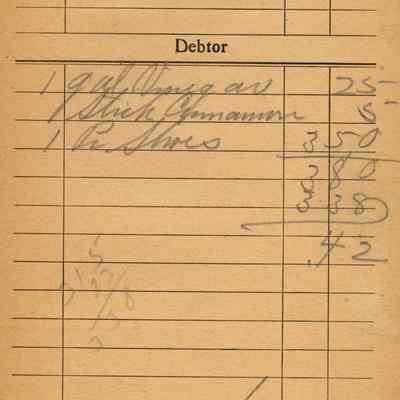 Debtor
1 gal Vinegar 25
1 Stick Cinnamon 5
1 Pr. Shoes 3 50
3 80
3 38
.42